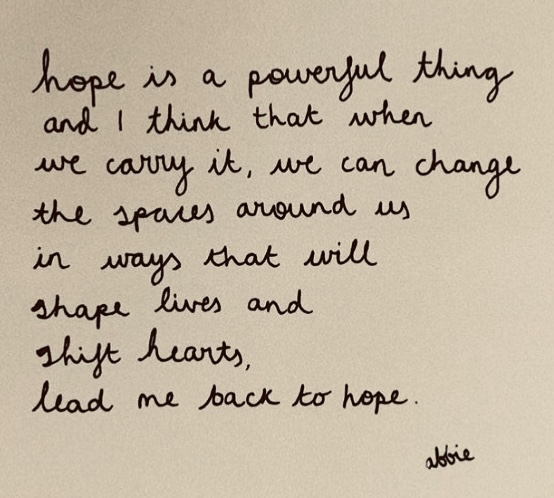 hope is a powerful thing
and I think that when
we carry it, we can change
the spaces around us
in ways that will
shape lives and
shift hearts,
lead me back to hope.
abbie